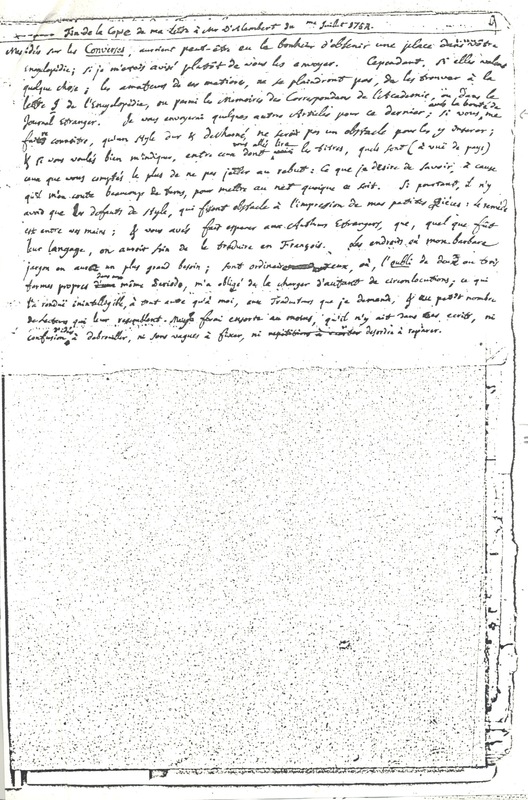 Fin de la Copie de ma Lettre à Mr D'Alembert du Juillet 1754.
Mes idées sur les Converses, auroient peut-être eu le bonheur d'obtenir une place dans vôtre
Encyclopédie; si je m'étois avisé plutôt de vous les envoyer. Cependant, si elles valent
quelque chose; les amateurs de ces matieres, ne se plaindront pas, de les trouver à la
lettre § de l'Encyclopédie, ou parmi les Memoires des Correspondans de l'Academie, ou dans le
Journal Etranger. Je vous envoyerai quelques autres Articles pour ce dernier; si vous me
avec la bonté de
faites connoitre, qu'un style dur & décharné, ne seroit pas un obstacle pour les y inserer;
& si vous voulés bien m'indiquer, entre ceux dont vous allés lire les titres, quels sont (à vuë de pays)
ceux que vous comptés le plus de ne pas jetter au rebut: Ce que je désire de savoir, à cause
qu'il m'en coute beaucoup de tems, pour mettre au net quoique ce soit. Si pourtant, il n'y
avoit que les defauts de style, qui fissent obstacle à l'impression de mes petites Pièces: le remède
est entre vos mains; & vous avés fait esperer aux Autheurs Etrangers, que, quel que fût
leur langage, on auroit soin de le traduire en François. Les endroits où mon barbare
jargon en aura un plus grand besoin; sont ordinairement ceux, où, l'oubli de deux ou trois
termes propres dans une même Periode, m'a obligé de la charger d'autant de circonlocutions; ce qui
l'a rendüe inintelligible, à tout autre qu'à moi, aux Traducteurs que je demande, & au petit nombre
de Lecteurs qui leur ressemblent. Mais je ferai ensorte au moins, qu'il n'y ait dans mes ecrits, ni
confusion à debrouiller, ni sens vagues à fixer, ni desordre à reparer.